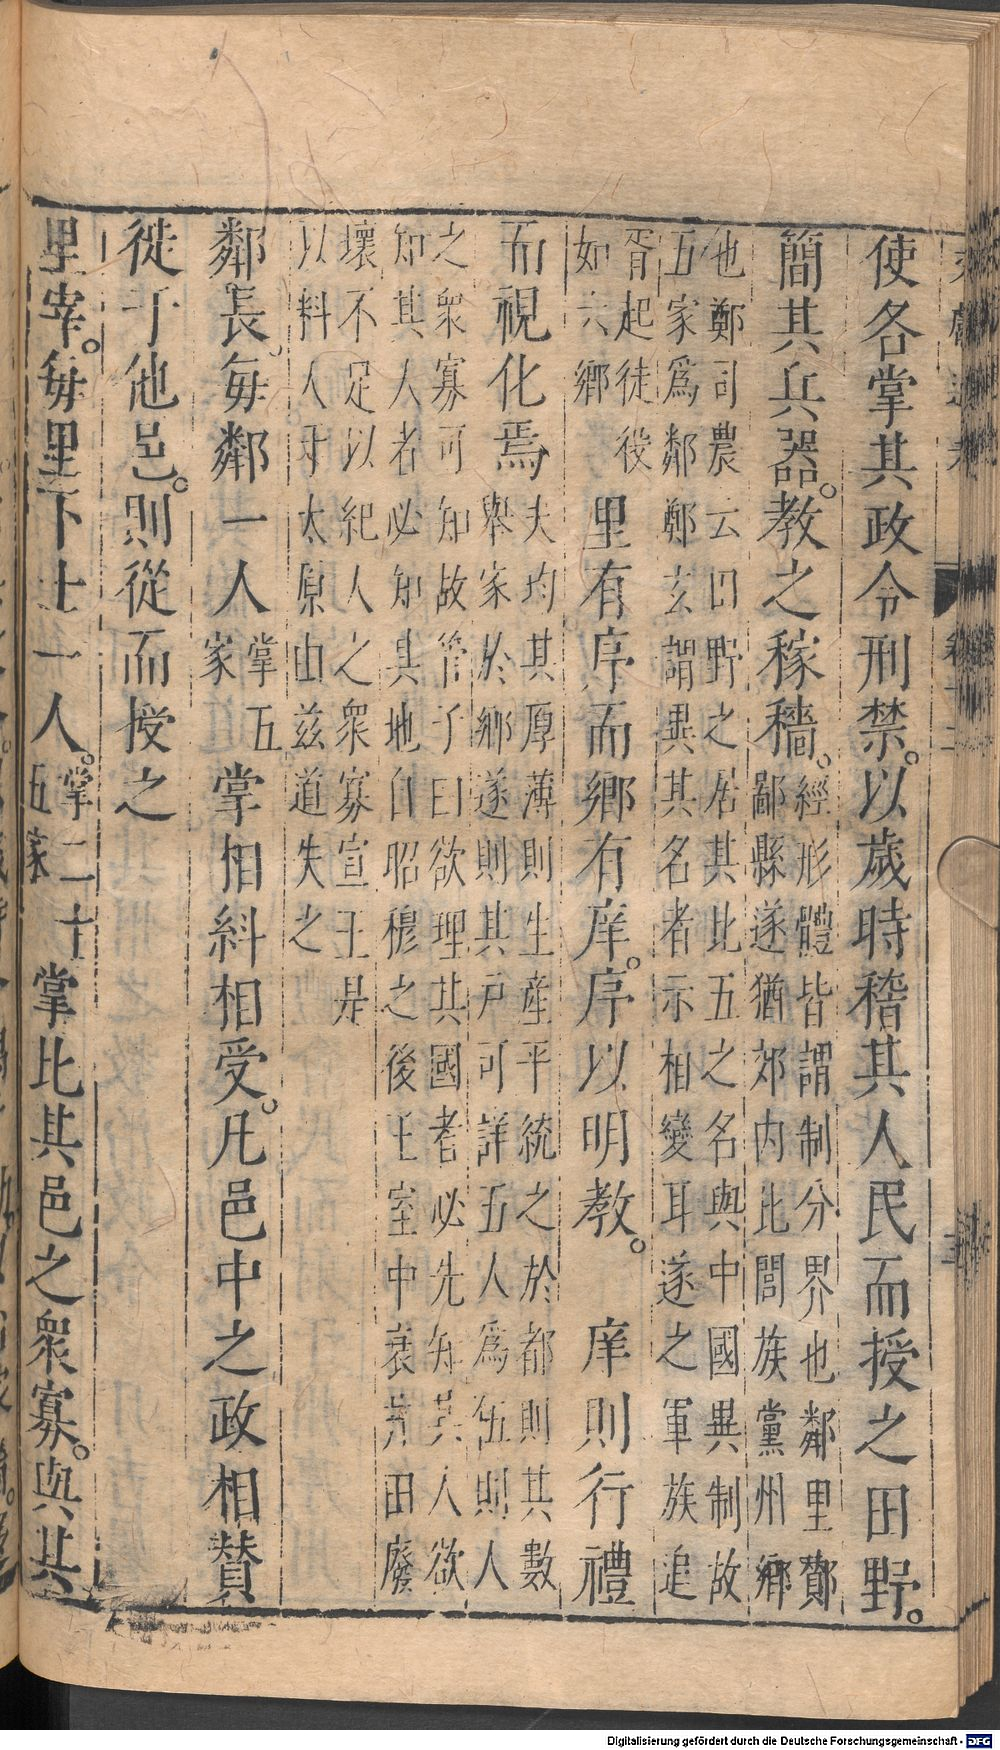 使各掌其政令刑禁。以歲時稽其人民而授之田野。
簡其兵器。教之稼穡。經形體皆謂制分界也鄰里酇
鄙縣遂猶郊内比閭族黨州鄉
他鄭司農云田野之居其比五之名與中國異制故
五家爲鄰鄭玄謂異其名者示相變耳遂之軍族追
胥起徒役
如六鄉 里有序而鄉有庠。序以明教。 庠則行禮
而視化焉 夫均其厚薄則生産平統之於都則其數
舉家於鄉遂則其戸可詳五人爲伍則人
之衆寡可知故管子曰欲理其國者必先知其人欲
知其人者必知其地自昭穆之後王室中衰井田廢
壞不足以紀人之衆寡宣王是
以料人于太原由茲道失之
鄰長。每鄰一人掌五家 掌相糾相受。凡邑中之政相贊
徙于他邑。則從而授之
里宰。每里下士一人。掌二十五家 掌比其邑之衆寡。與其
Digitalisierung gefördert durch die Deutsche Forschungsgemeinschaft - DFG